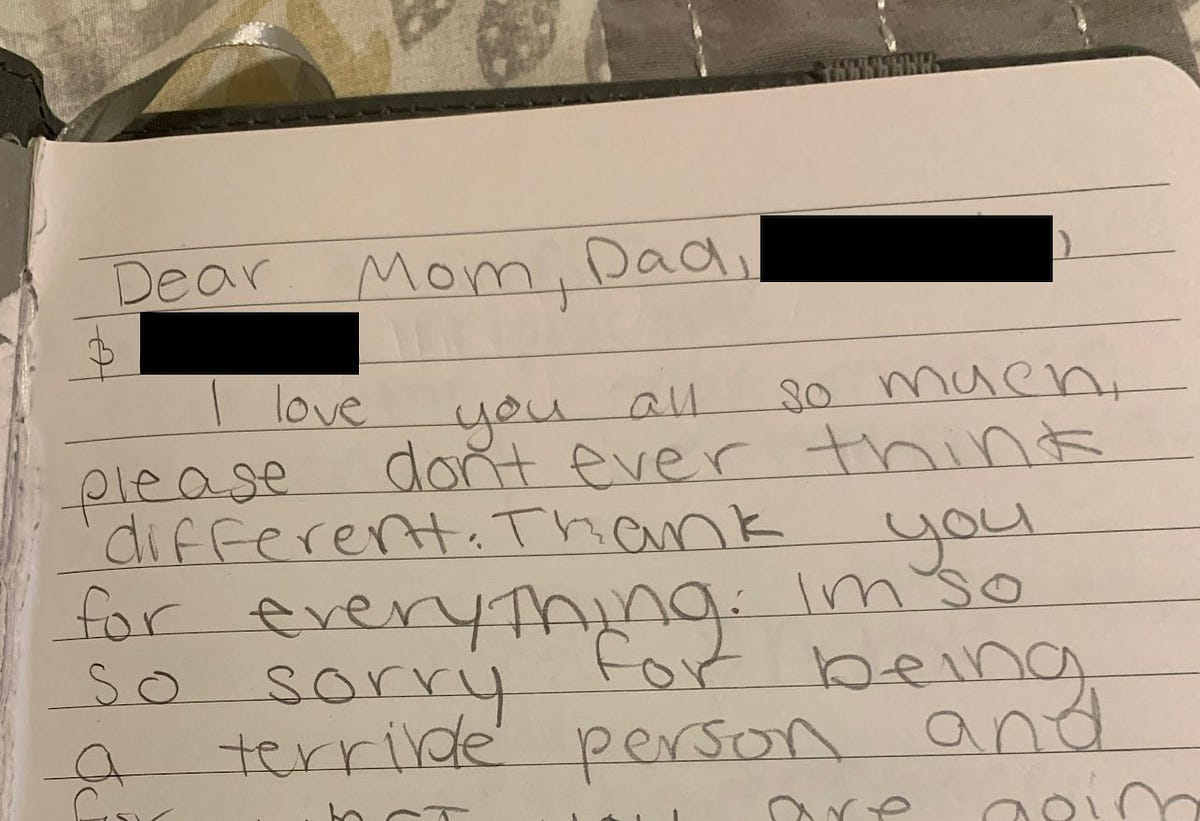 Dear Mom, Dad, ,
&
I love you all so much,
please don't ever think
different. Thank you
for everything. Im so
so sorry for being
a terrible person and
for what you are